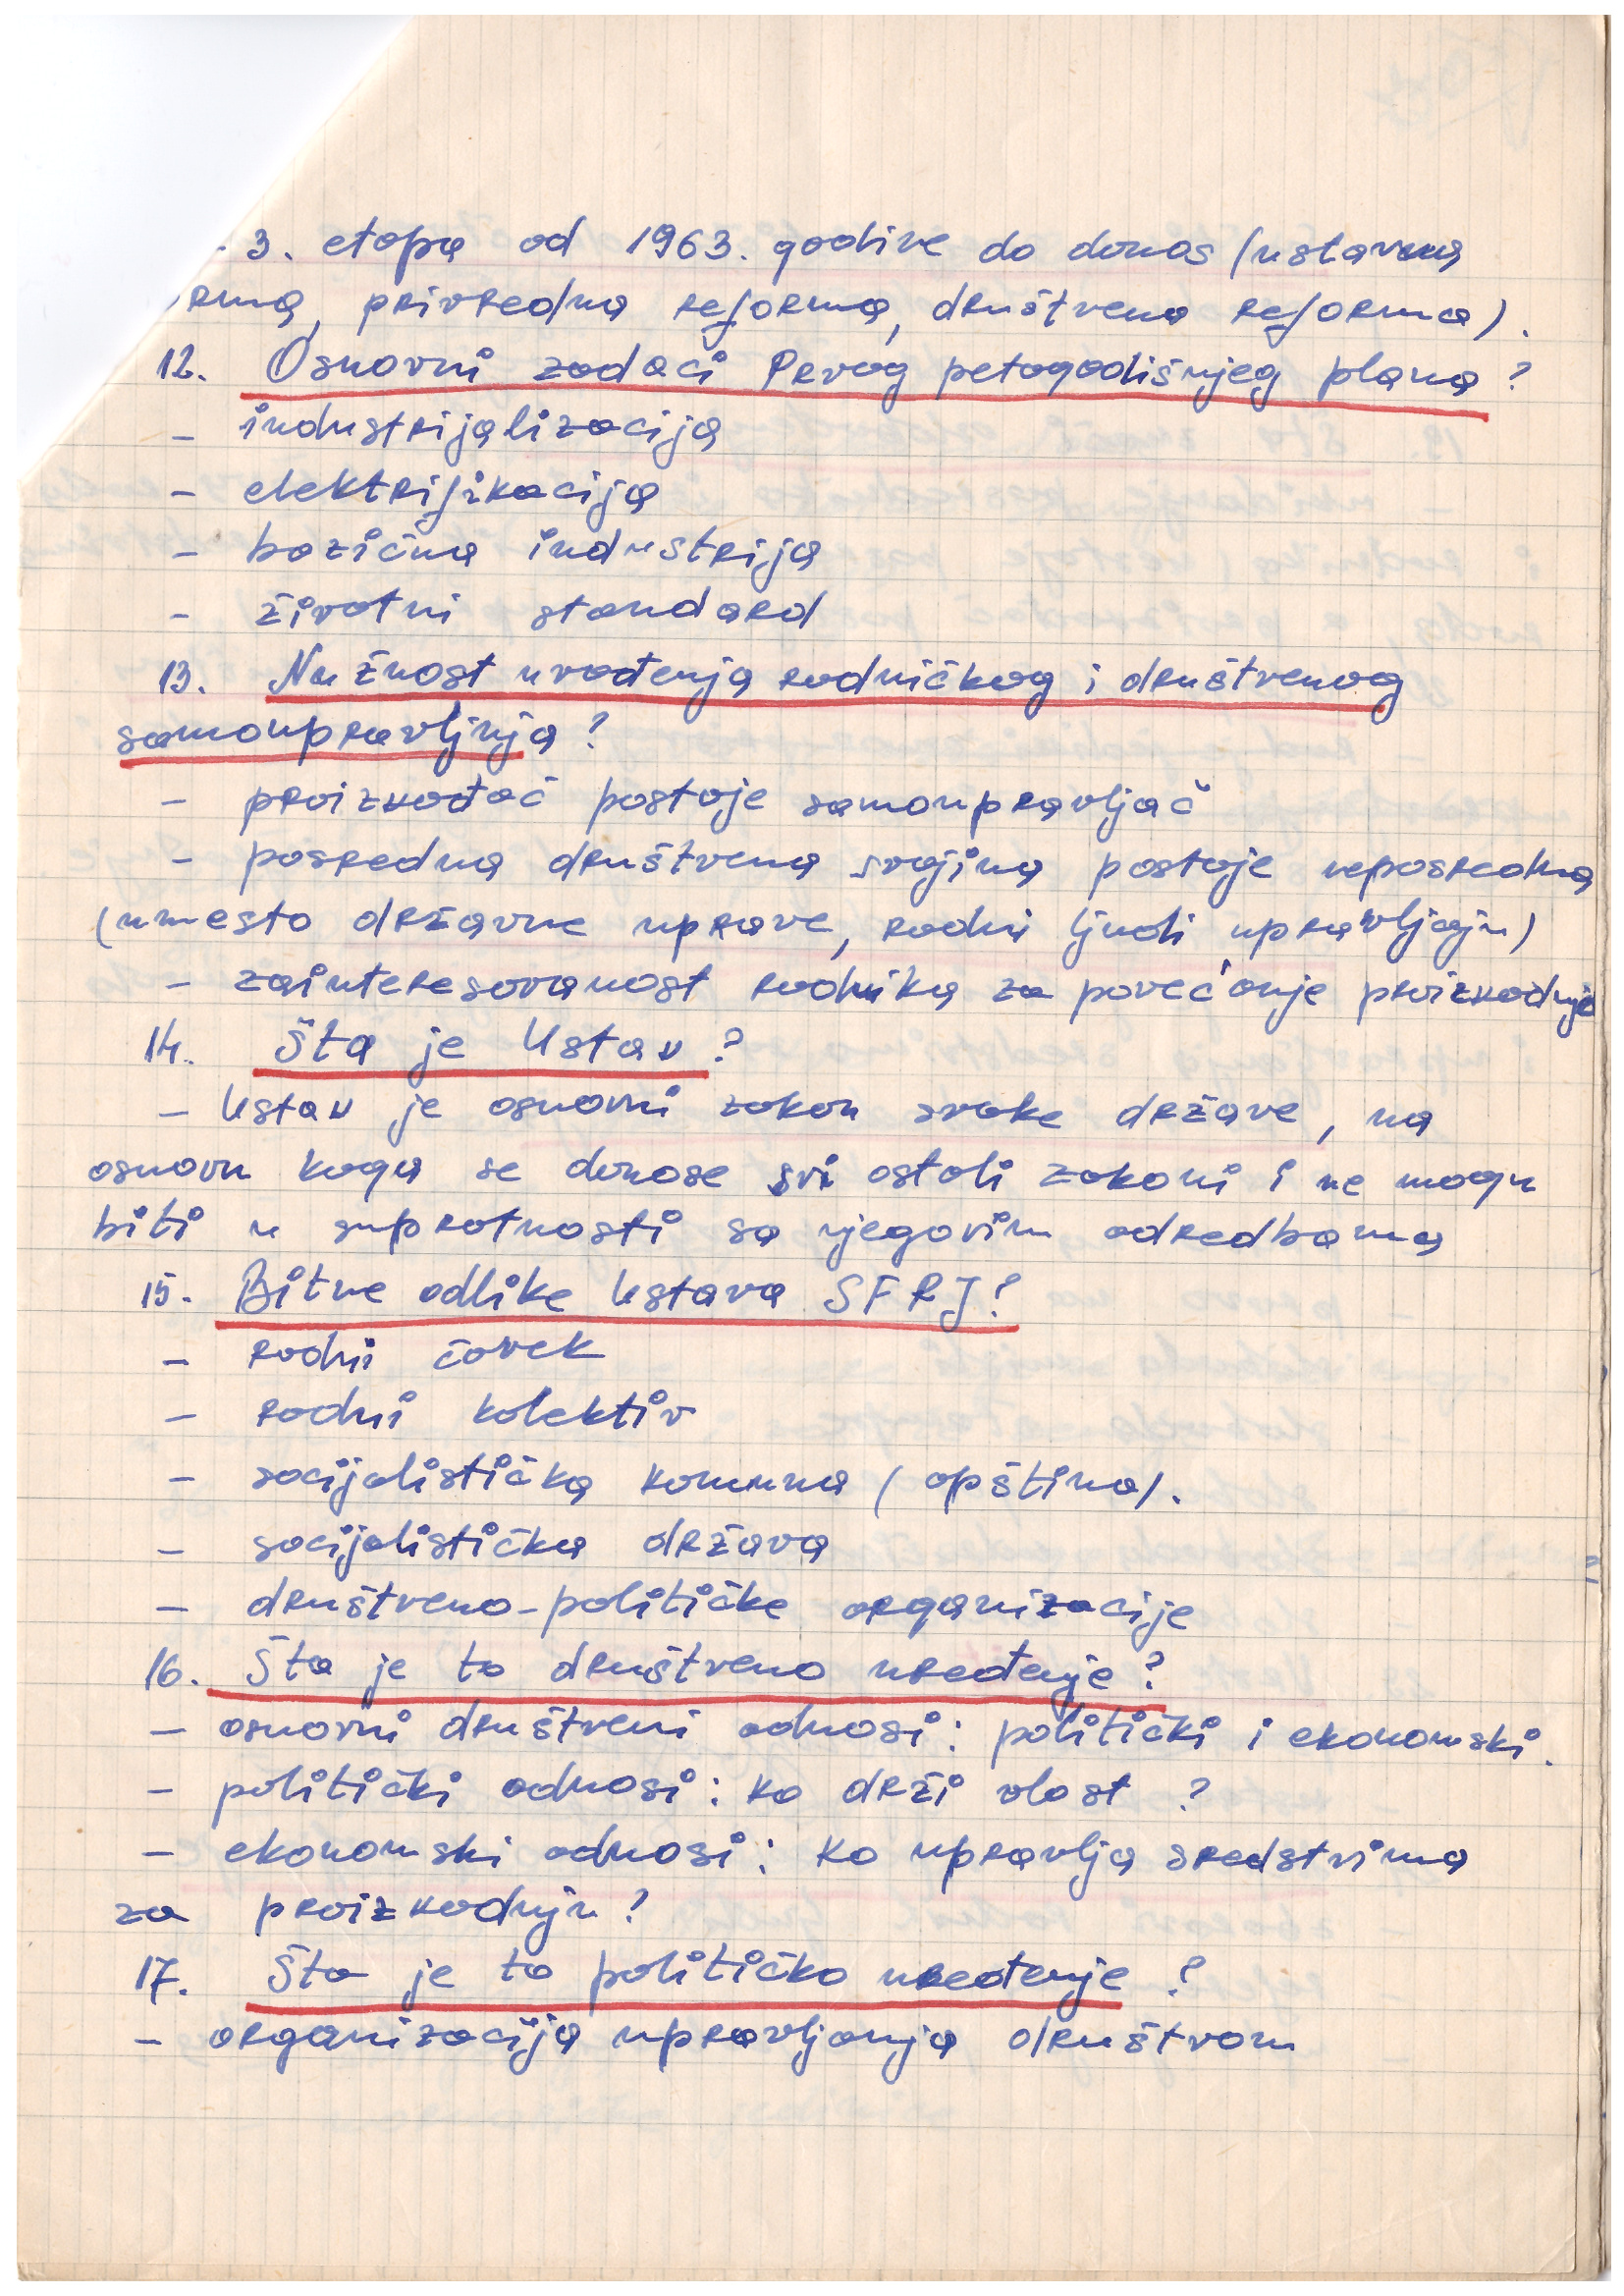 - 3. etapa od 1963. godine do danas (ustavna
rma, privredna reforma, društvena reforma).
12. Osnovni zadaci Prvog petogodišnjeg plana?
- industrijalizacija
- elektrifikacija
- bazična industrija
- životni standard
13. Nužnost uvođenja radničkog i društvenog
samoupravljnja?
- proizvođač postaje samoupravljač
- posredna društvena svojina postaje neposredna
(umesto državne uprave, radni ljudi upravljaju)
- zainteresovanost radnika za povećanje proizvodnje
14. Šta je Ustav?
- Ustav je osnovni zakon svake države, na
osnovu koga se donose svi ostali zakoni i ne mogu
biti u suprotnosti sa njegovim odredbama
15. Bitne odlike Ustava SFRJ?
- radni čovek
- radni kolektiv
- socijalistička komuna (opština).
- socijalistička država
- društveno-političke organizacije
16. Šta je to društveno uređenje?
- osnovni društveni odnosi: politički i ekonomski.
- politički odnosi: ko drži vlast?
- ekonomski odnosi: ko upravlja sredstvima
za proizvodnju?
17. Šta je to političko uređenje?
- organizacija upravljanja društvom